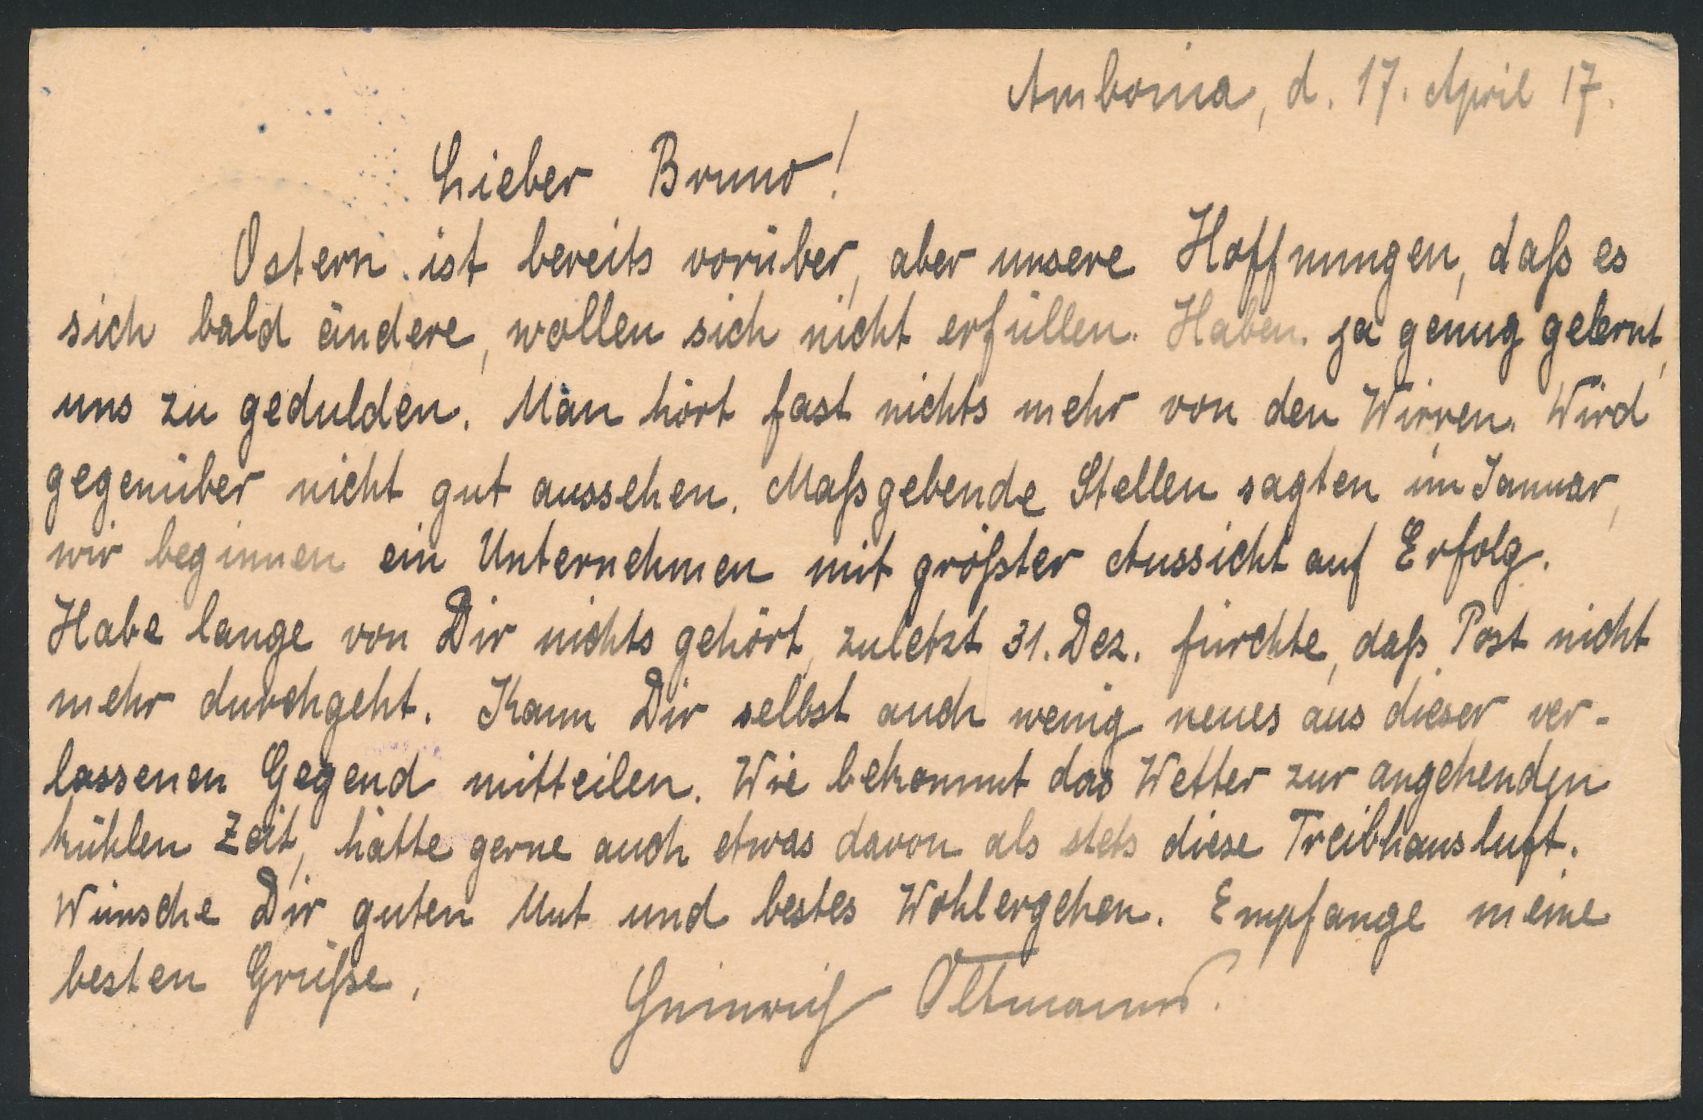 Amboina, d. 17. April 17.
Lieber Bruno!
Ostern ist bereits vorüber, aber unsere Hoffnungen, daß es
sich bald ändere, wollen sich nicht erfüllen. Haben ja genug gelernt,
uns zu gedulden. Man hört fast nichts mehr von den Wirren. Wird
gegenüber nicht gut aussehen. Maßgebende Stellen sagten im Januar,
wir beginnen ein Unternehmen mit größter Aussicht auf Erfolg.
Habe lange von Dir nichts gehört, zuletzt 31. Dez. fürchte, daß Post nicht
mehr durchgeht. Kann Dir selbst auch wenig neues aus dieser ver-
lassenen Gegend mitteilen. Wie bekommt das Wetter zur angehenden
kühlen Zeit, hätte gerne auch etwas davon als stets diese Treibhausluft.
Wünsche Dir guten Mut und bestes Wohlergehen. Empfange meine
besten Grüße,
Heinrich Oltmanns.